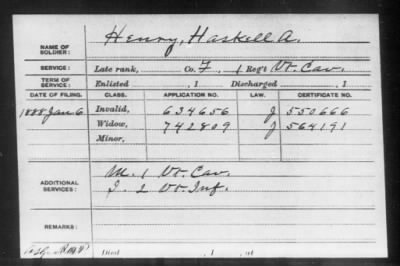 NAME OF SOLDIER: Henry, Haskell A.
SERVICE: Late rank, Co. F, 1 Reg't Vt. Cav.
TERM OF SERVICE: Enlisted , 1 Discharged , 1
DATE OF FILING. CLASS. APPLICATION NO. LAW. CERTIFICATE NO.
1888 Jan 6 Invalid, 634656 J 550666
Widow, 742809 J 564191
Minor,
ADDITIONAL SERVICES: M. 1 Vt. Cav.
I. 2 Vt. Inf.
REMARKS:
Died , 1 , at